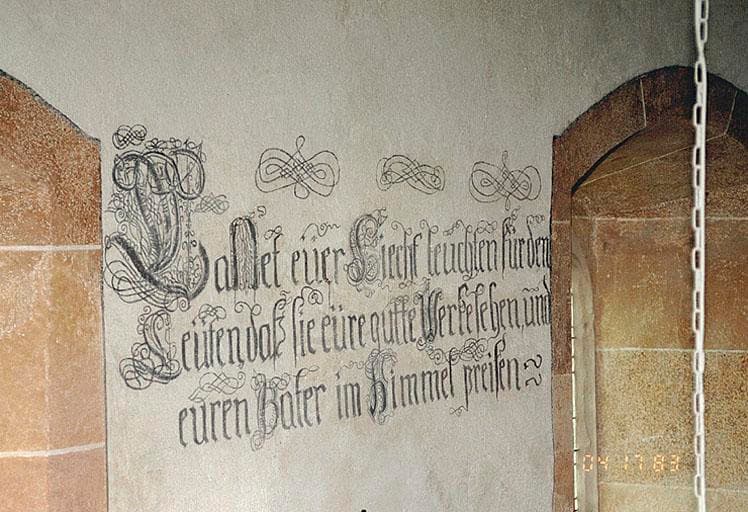 Lasset eüer Liecht leüchten für den
Leüten, daß sie eüre gutte Werke sehen, und
euren Vater im Himmel preisen
04 17 83